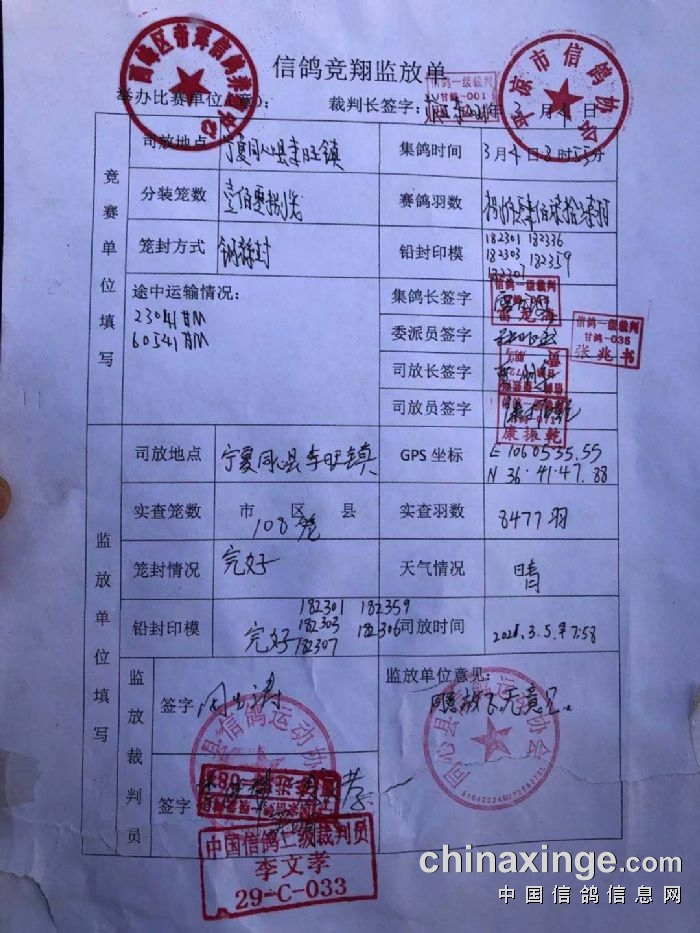 信鸽竞翔监放单
举办比赛单位(章):
裁判长签字:
年 3 月 4 日
信鸽一级裁判
甘鸽-001
竞赛单位填写
司放地点 宁夏同心县李旺镇 集鸽时间 3月4日3时55分
分装笼数 壹佰零捌笼 赛鸽羽数
笼封方式 钢丝封 铅封印模 182301 182336
182303 182359
182307
途中运输情况:
23041甘M
60541甘M
集鸽长签字
信鸽一级裁判
委派员签字
信鸽一级裁判
甘鸽-035
张兆书
司放长签字
司放员签字
康振乾
监放单位填写
司放地点 宁夏同心县李旺镇 GPS 坐标 E 106·05·35.55
N 36·41·47.88
实查笼数 市 区 县 实查羽数 8477羽
108笼
笼封情况 完好 天气情况 晴
铅封印模 完好 182301 182359
182303 182306
182307
司放时间 2021.3.5.早7:58
监放裁判员
签字
监放单位意见:
同意放飞无意见。
同心县信鸽运动协会
签字
中国信鸽一级裁判员
李文孝
29-C-033
chinaxinge.com
中国信鸽信息网